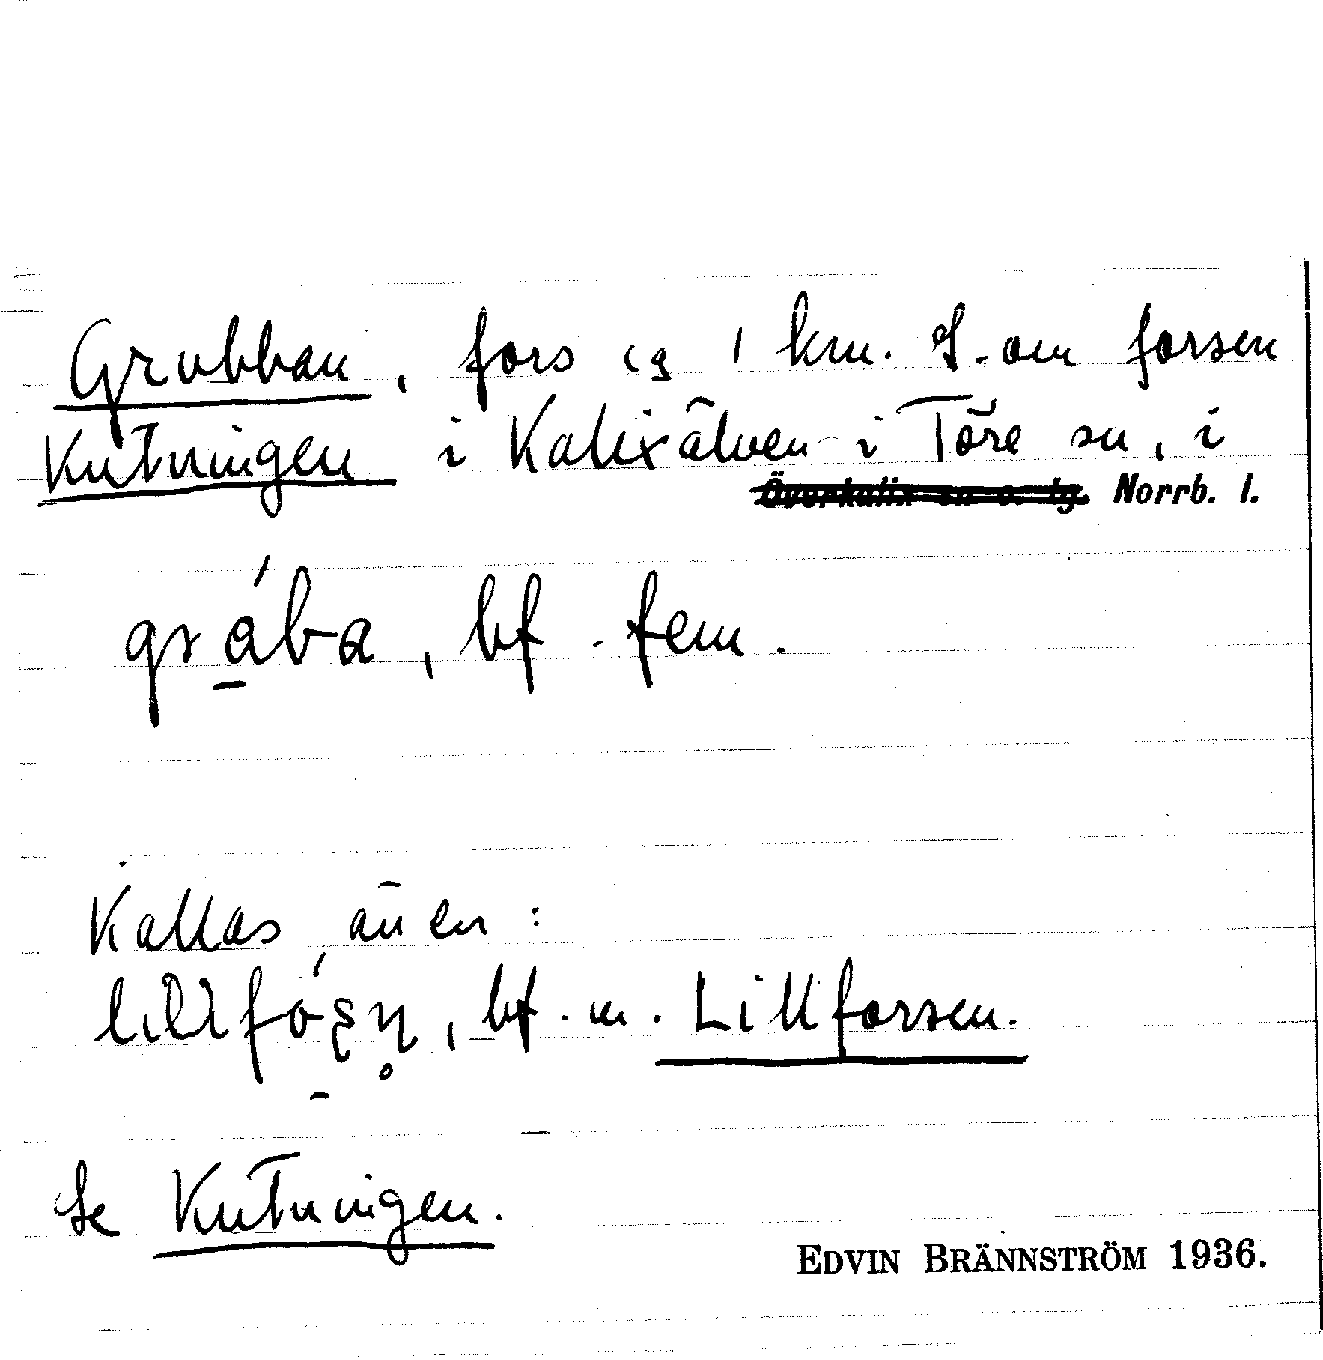 Grubban, fors ca 1 km. S. om forsen
Kutningen i Kalixälven i Töre sn, i
Överkalix sn o. tg. Norrb. l.
gråba, bf. fem.
Kallas även:
bf. m. Lillforsen.
Se Kutningen.
EDVIN BRÄNNSTRÖM 1936.